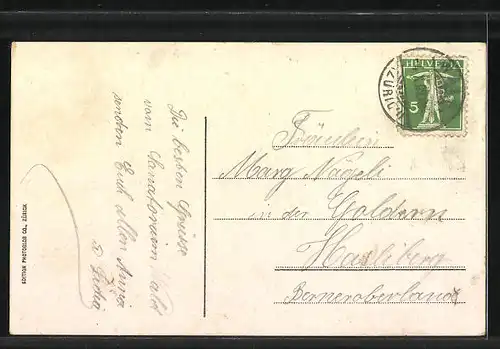 Die besten Grüsse
vom Sanatorium Wald
senden Euch allen Anna
EDITION PHOTOGLOB CO., ZÜRICH
HELVETIA
5
ZÜRICH
Fräulein
Marg Nägeli
in der Goldern
Hasliberg
Berneroberland